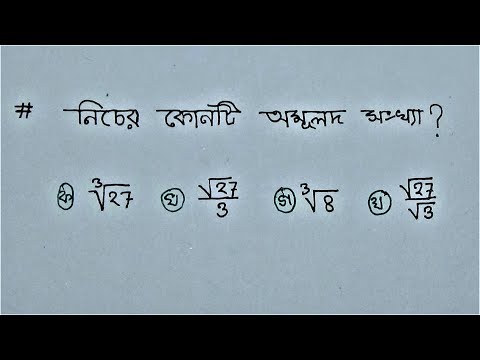 # নিচের কোনটি অমূলদ সংখ্যা?
ক ∛27 খ √27/3 গ ∛8 ঘ √27/√3